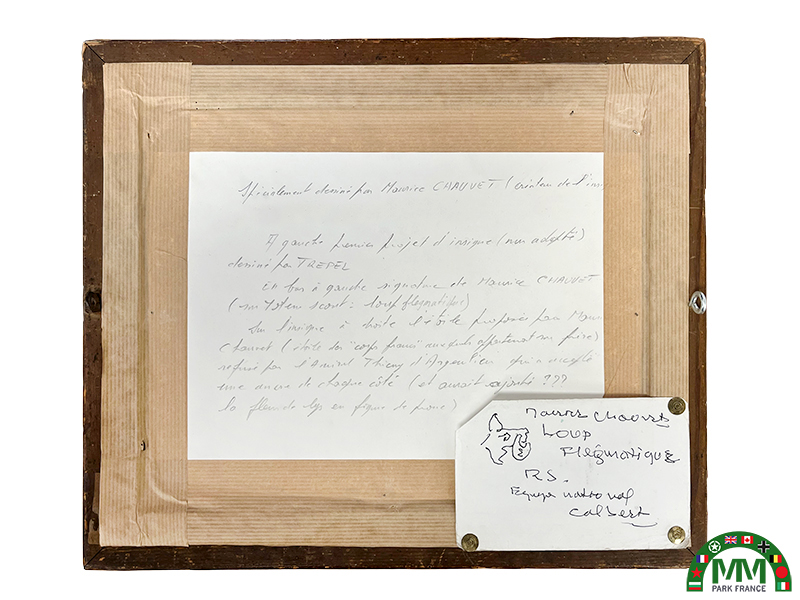 Spécialement dessiné par Maurice CHAUVET (créateur de l'insi
A gauche premier projet d'insigne (non adopté)
dessiné par TREPEL
En bas à gauche signature de Maurice CHAUVET
(son totem scout : loup flegmatique)
Sur l'insigne à droite l'étoile proposée par Mauri
Chauvet (étoile des "corps francs" auxquels appartenait son frère)
refusée par l'Amiral Thierry d'Argenlieu qui a accepté
une ancre de chaque côté (et aurait ajouté ???
la fleur de lys en figure de proue)
Maurice Chauvet
Loup
Flégmatique
R.S.
Equipe national
Colbert
MM
PARK FRANCE